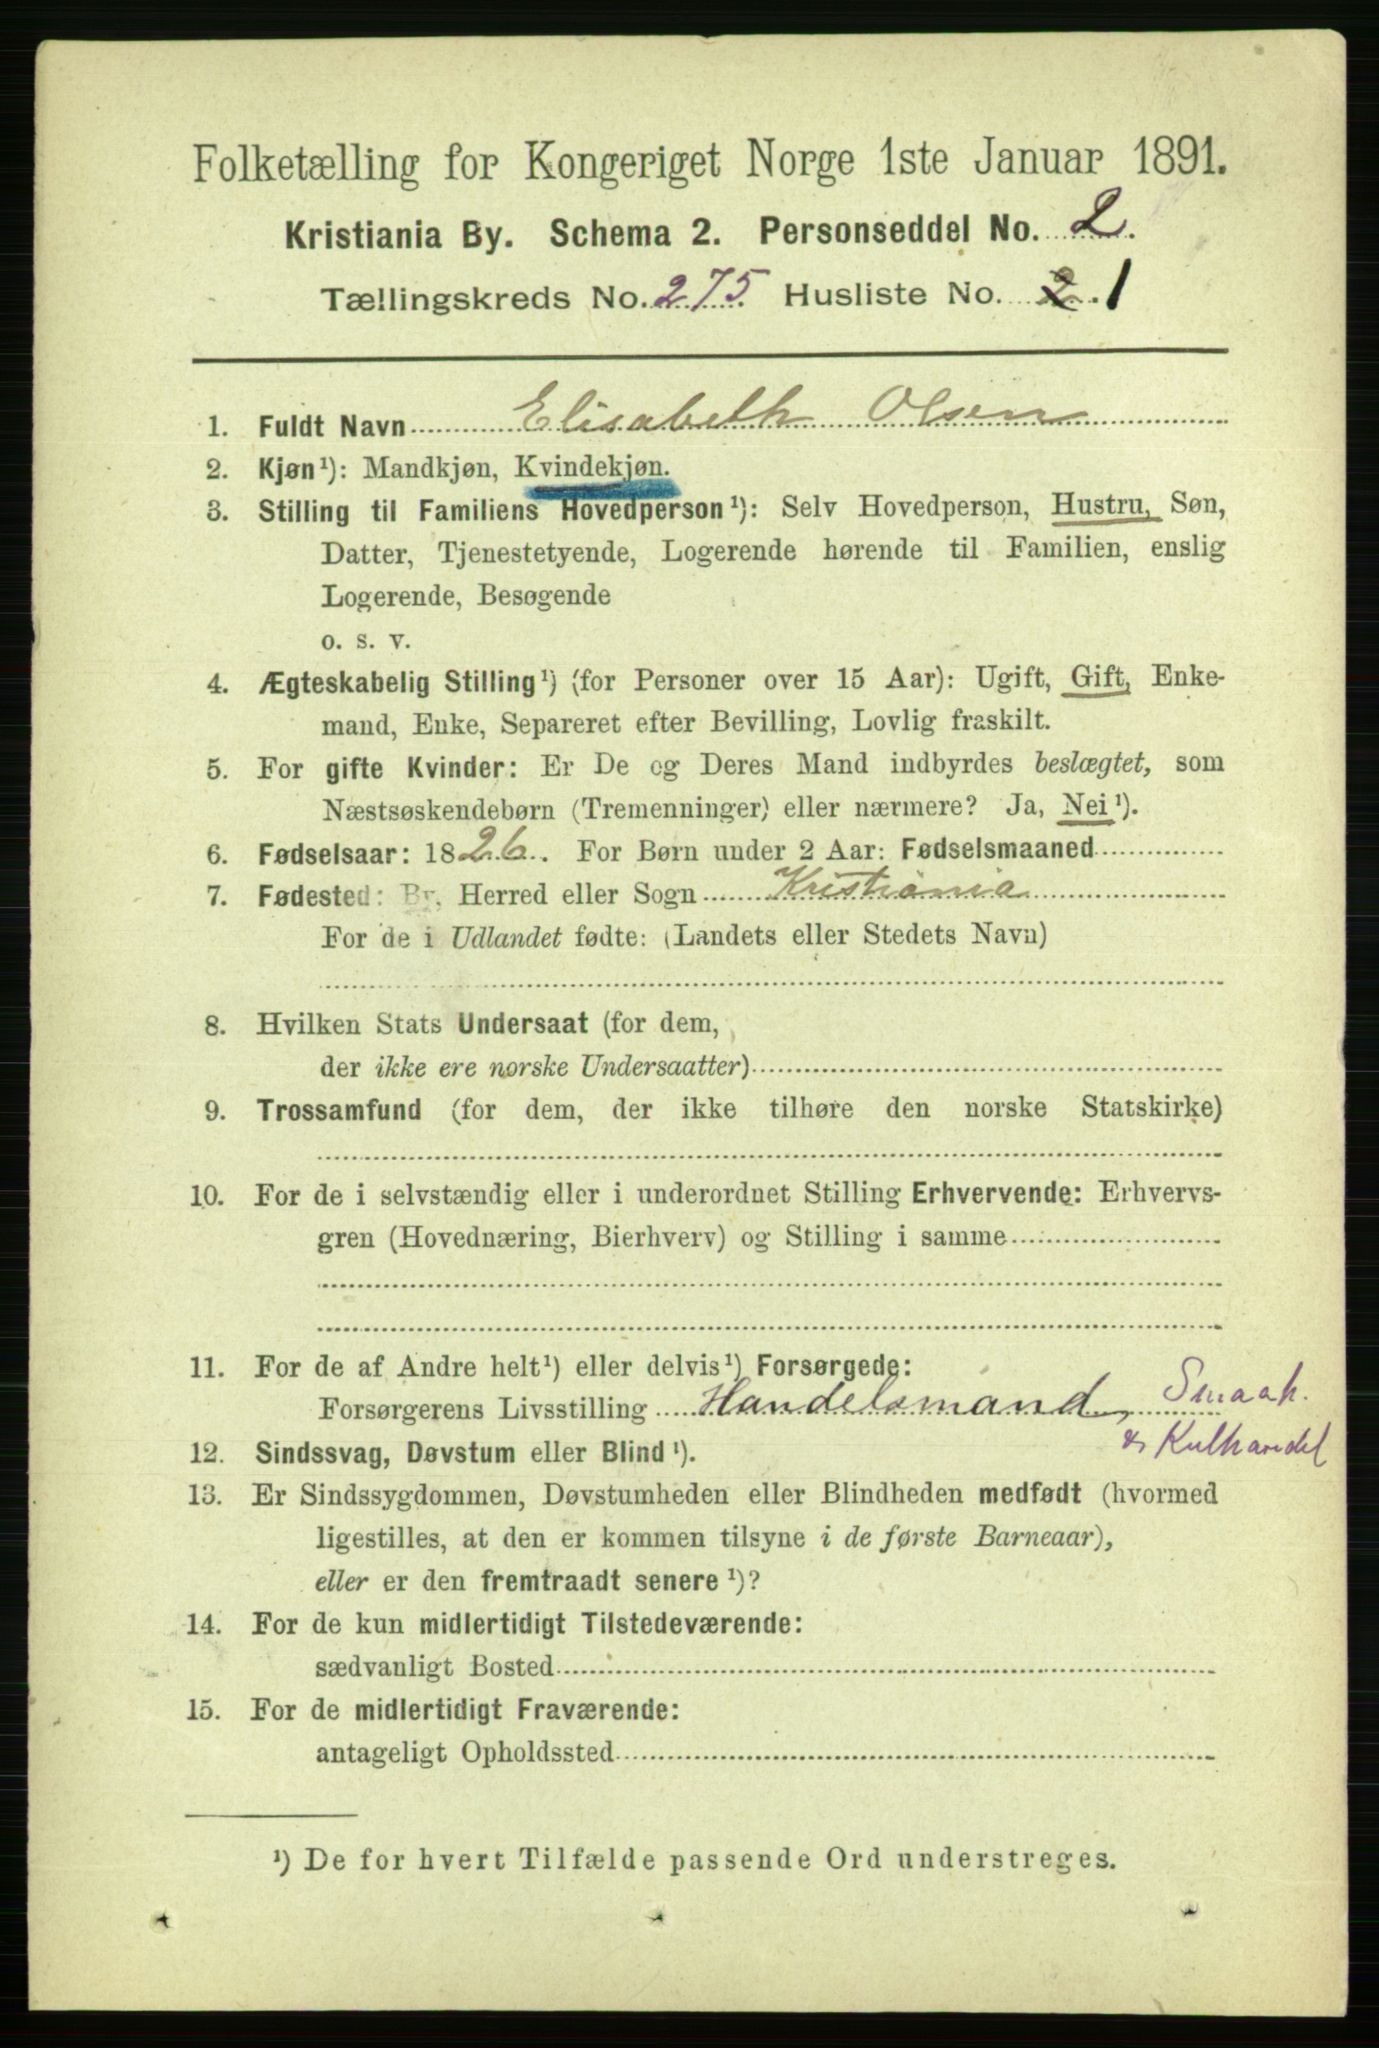 Folketælling for Kongeriget Norge 1ste Januar 1891.
Kristiania By. Schema 2. Personseddel No. 2.
Tællingskreds No. 275. Husliste No. 2. 1
1. Fuldt Navn Elisabeth Olsen
2. Kjøn¹): Mandkjøn, Kvindekjøn.
3. Stilling til Familiens Hovedperson¹): Selv Hovedperson, Hustru, Søn,
Datter, Tjenestetyende, Logerende hørende til Familien, enslig
Logerende, Besøgende
o. s. v.
4. Ægteskabelig Stilling¹) (for Personer over 15 Aar): Ugift, Gift, Enke-
mand, Enke, Separeret efter Bevilling, Lovlig fraskilt.
5. For gifte Kvinder: Er De og Deres Mand indbyrdes beslægtet, som
Næstsøskendebørn (Tremenninger) eller nærmere? Ja, Nei¹).
6. Fødselsaar: 1826. For Børn under 2 Aar: Fødselsmaaned
7. Fødested: By, Herred eller Sogn Kristiania
For de i Udlandet fødte: (Landets eller Stedets Navn)
8. Hvilken Stats Undersaat (for dem,
der ikke ere norske Undersaatter)
9. Trossamfund (for dem, der ikke tilhøre den norske Statskirke)
10. For de i selvstændig eller i underordnet Stilling Erhvervende: Erhvervs-
gren (Hovednæring, Bierhverv) og Stilling i samme
11. For de af Andre helt¹) eller delvis¹) Forsørgede:
Forsørgerens Livsstilling Handelsmand, Smaah.
& Kulhandel
12. Sindssvag, Døvstum eller Blind¹).
13. Er Sindssygdommen, Døvstumheden eller Blindheden medfødt (hvormed
ligestilles, at den er kommen tilsyne i de første Barneaar),
eller er den fremtraadt senere¹)?
14. For de kun midlertidigt Tilstedeværende:
sædvanligt Bosted
15. For de midlertidigt Fraværende:
antageligt Opholdssted
¹) De for hvert Tilfælde passende Ord understreges.